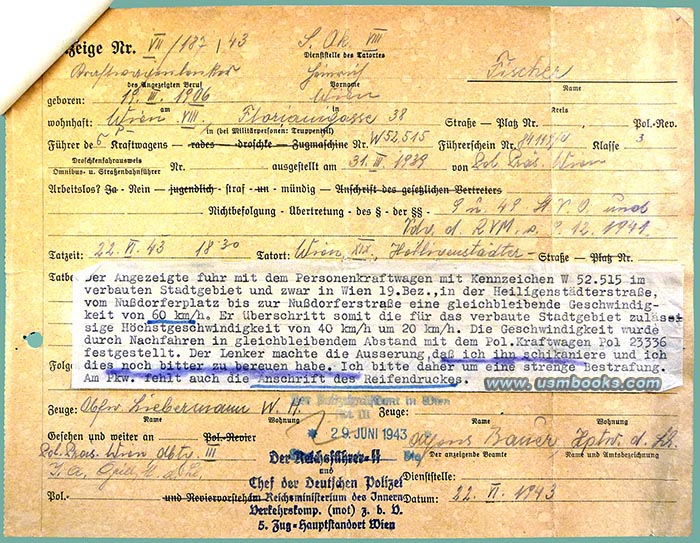 zeige Nr. VII/187/43 S. Ak. VIII
Dienststelle des Tatortes
Kraftwagenlenker Heinrich Fischer
des Angezeigten Beruf Vorname Name
geboren: 19. III. 1906 am Wien in Kreis
wohnhaft: Wien VIII. Florianigasse 38 Straße – Platz Nr. Pol.-Rev.
in (bei Militärpersonen: Truppenteil)
Führer des P Kraftwagens – rades – droschke – Zugmaschine Nr. W52,515 Führerschein Nr. Klasse 3
Droschkenfahrausweis
Omnibus- u. Straßenbahnführer Nr. ausgestellt am 31. III. 1939 von Pol. Präs. Wien
Arbeitslos? Ja - Nein – jugendlich – straf - un - mündig – Anschrift des gesetzlichen Vertreters
Nichtbefolgung - Übertretung - des § - der §§ - 9 u. 49 St.V.O. und
Vdg. d. RVM. v. 12. 1941.
Tatzeit: 22. VI. 43 18 30 Tatort: Wien, XIX, Heiligenstädter- Straße – Platz Nr.
Tatbe
Der Angezeigte fuhr mit dem Personenkraftwagen mit Kennzeichen W 52.515 im
verbauten Stadtgebiet und zwar in Wien 19.Bez.,in der Heiligenstädterstraße,
vom Nußdorferplatz bis zur Nußdorferstraße eine gleichbleibende Geschwindig-
keit von 60 km/h. Er überschritt somit die für das verbaute Stadtgebiet zuläs=
sige Höchstgeschwindigkeit von 40 km/h um 20 km/h. Die Geschwindigkeit wurde
durch Nachfahren in gleichbleibendem Abstand mit dem Pol.Kraftwagen Pol 23336
festgestellt. Der Lenker machte die Ausserung,daß ich ihn schikaniere und ich
dies noch bitter zu bereuen habe. Ich bitte daher um eine strenge Bestrafung.
Am Pkw. fehlt auch die Anschrift des Reifendruckes.
Folge
www.usmbooks.com
Zeuge: Obfw Liebermann W. A. Zeuge:
Name Wohnung Name Wohnung
in Wien
Gesehen und weiter an Pol.-Revier * 29. JUNI 1943 Alfons Bauer
Der anzeigende Beamte Name und Amtsbezeichnung
Pol. Präs. Wien Abtg. III
Der Reichsführer-SS
und
Chef der Deutschen Polizei Dienststelle:
Pol.- und Reviervorsteher im Reichsministerium des Innern Datum: 22. VI. 1943
Verkehrskomp. (mot) z. b. V.
5. Zug-Hauptstandort Wien